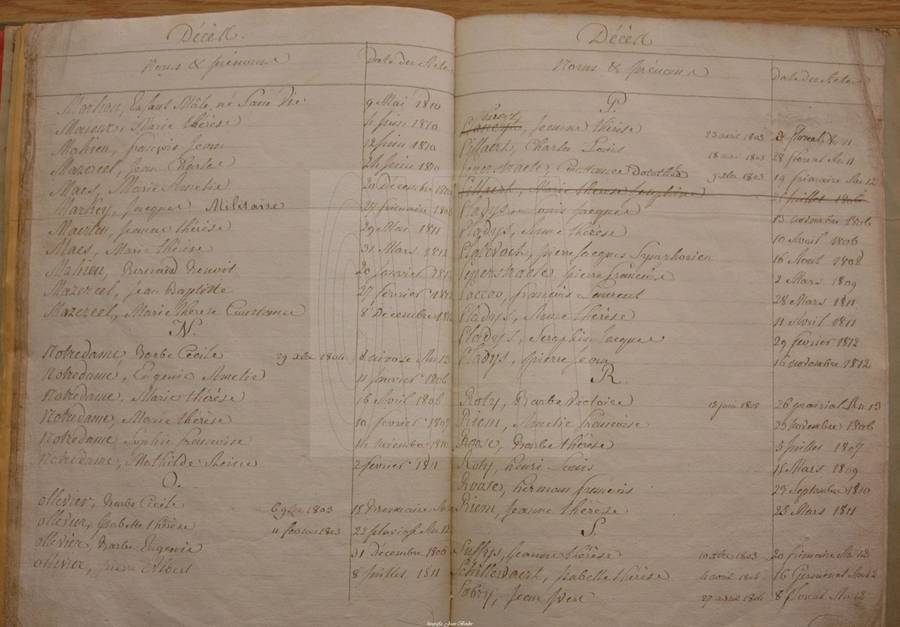 Décès
Noms & prénoms Date des Actes
Mahieu, Enfant Mâle né Sans Vie 9 Mai 1810
Marie thérèse 4 juin 1810
Mahieu, françois Jean 12 juin 1810
Mazereel, Jean Charles 24 juin 1810
Maes, Marie Amelie
Jacques Militaire
Maerten, jeanne thérèse 29 Mai 1811
Maes, Marie thérèse 31 Mars 1812
Mahieu, Bernard Benoit
Mazereel, Jean Baptiste 27 février
Mazereel, Marie thérèse Constance 8 Décembre
N.
Notredame Barbe Cécile 29 xbre 1804 8 nivose An 13
Notredame, Eugenie Amelie 11 Janvier 1806
Notredame, Marie thérèse 16 Avril 1806
Notredame, Marie thérèse 10 février 1809
Notredame Sophie francoise 14 novembre 1810
Notredame, Mathilde 2 fevrier 1811
O.
Ollivier, Barbe Cécile 6 9bre 1803 15 Brumaire
Ollivier, Isabelle thérèse 11 fevrier 1803 22 pluviose An
Ollivier, Barbe Eugenie 31 decembre 1806
Ollivier, pierre Albert 8 juillet 1811
Décès
Noms & prénoms Date des Actes
P.
jeanne thérèse 23 avril 1803 floréal An 11
Charles Louis 18 mai 1803 28 floreal An 11
Constance Dorothée 9 xbre 1803 19 frimaire An 12
Marie therese Josephine juillet 1806
Pladys Louis jacques 13 novembre 1806
Pladys, Anne thérèse 10 Avril 1806
pierre Jacques Symphorien 16 Avril 1808
pierre francois 2 Mars 1809
francois Laurent 28 Mars 1811
Pladys, Anne thérèse 11 Avril 1811
Pladys, Seraphin jacques 29 fevrier 1812
Pladys, pierre jean 16 novembre 1812
R.
Roty, Barbe Victoire 15 juin 1805 26 prairial An 13
Riem, Amelie francoise 25 novembre 1806
Roose, Barbe thérèse 5 juillet 1807
Roty, henri Louis 15 Mars 1809
Roose, herman francois 29 Septembre 1810
Riem, jeanne thérèse 23 Mars 1811
S.
jeanne thérèse 10 xbre 1803 20 frimaire An 12
Isabelle thérèse 6 avril 1804 16 Germinal An 12
Sobry, Jean 27 avril 1804 8 floreal An 12